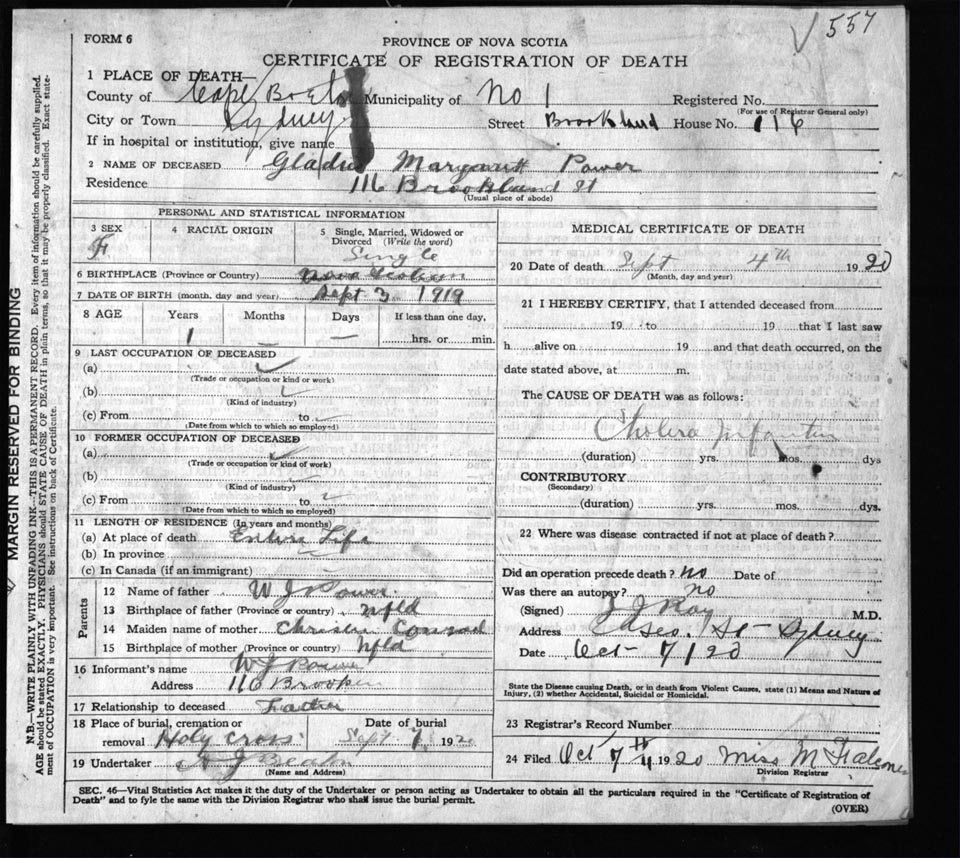 557
FORM 6
PROVINCE OF NOVA SCOTIA
CERTIFICATE OF REGISTRATION OF DEATH
1 PLACE OF DEATH—
County of Cape Breton Municipality of No 1 Registered No.
(For use of Registrar General only)
City or Town Sydney Street Brookland House No. 116
If in hospital or institution, give name
2 NAME OF DECEASED Gladis Margarett Power
Residence 116 Brookland St
(Usual place of abode)
PERSONAL AND STATISTICAL INFORMATION
3 SEX F.
4 RACIAL ORIGIN
5 Single, Married, Widowed or Divorced (Write the word)
Single
6 BIRTHPLACE (Province or Country) Nova Scotian
7 DATE OF BIRTH (month, day and year) Sept 3 1919
8 AGE Years Months Days If less than one day,
1 — — hrs. or min.
9 LAST OCCUPATION OF DECEASED
(a)
(Trade or occupation or kind or work)
(b)
(Kind of industry)
(c) From to
(Date from which to which so employed)
10 FORMER OCCUPATION OF DECEASED
(a)
(Trade or occupation or kind of work)
(b)
(Kind of industry)
(c) From to
(Date from which to which so employed)
11 LENGTH OF RESIDENCE (In years and months)
(a) At place of death Entire Life
(b) In province
(c) In Canada (if an immigrant)
Parents
12 Name of father W J Power.
13 Birthplace of father (Province or country) Nfld
14 Maiden name of mother Christen Conrad
15 Birthplace of mother (Province or country) Nfld
16 Informant's name W J Power
Address 116 Brooken
17 Relationship to deceased Father
18 Place of burial, cremation or Date of burial
removal Holy Cross Sept 7, 1920
19 Undertaker A J Beaton
(Name and Address)
MEDICAL CERTIFICATE OF DEATH
20 Date of death Sept 4th 1920
(Month, day and year)
21 I HEREBY CERTIFY, that I attended deceased from
19 to 19 that I last saw
h alive on 19 and that death occurred, on the
date stated above, at m.
The CAUSE OF DEATH was as follows:
Cholera Infantum
(duration) yrs. mos. dys
CONTRIBUTORY
(Secondary)
(duration) yrs. mos. dys.
22 Where was disease contracted if not at place of death?
Did an operation precede death? No Date of
Was there an autopsy? No
(Signed) J J Roy M.D.
Address St - Sydney
Date Oct - 7/20
State the Disease causing Death, or in death from Violent Causes, state (1) Means and Nature of
Injury, (2) whether Accidental, Suicidal or Homicidal.
23 Registrar's Record Number
24 Filed Oct 7th 1920 Miss M
Division Registrar
SEC. 46—Vital Statistics Act makes it the duty of the Undertaker or person acting as Undertaker to obtain all the particulars required in the "Certificate of Registration of
Death" and to fyle the same with the Division Registrar who shall issue the burial permit.
(OVER)
MARGIN RESERVED FOR BINDING
N.B.—WRITE PLAINLY WITH UNFADING INK—THIS IS A PERMANENT RECORD. Every item of information should be carefully supplied.
AGE should be stated EXACTLY. PHYSICIANS should STATE CAUSE OF DEATH in plain terms, so that it may be properly classified. Exact statement of OCCUPATION is very important. See instructions on back of Certificate.